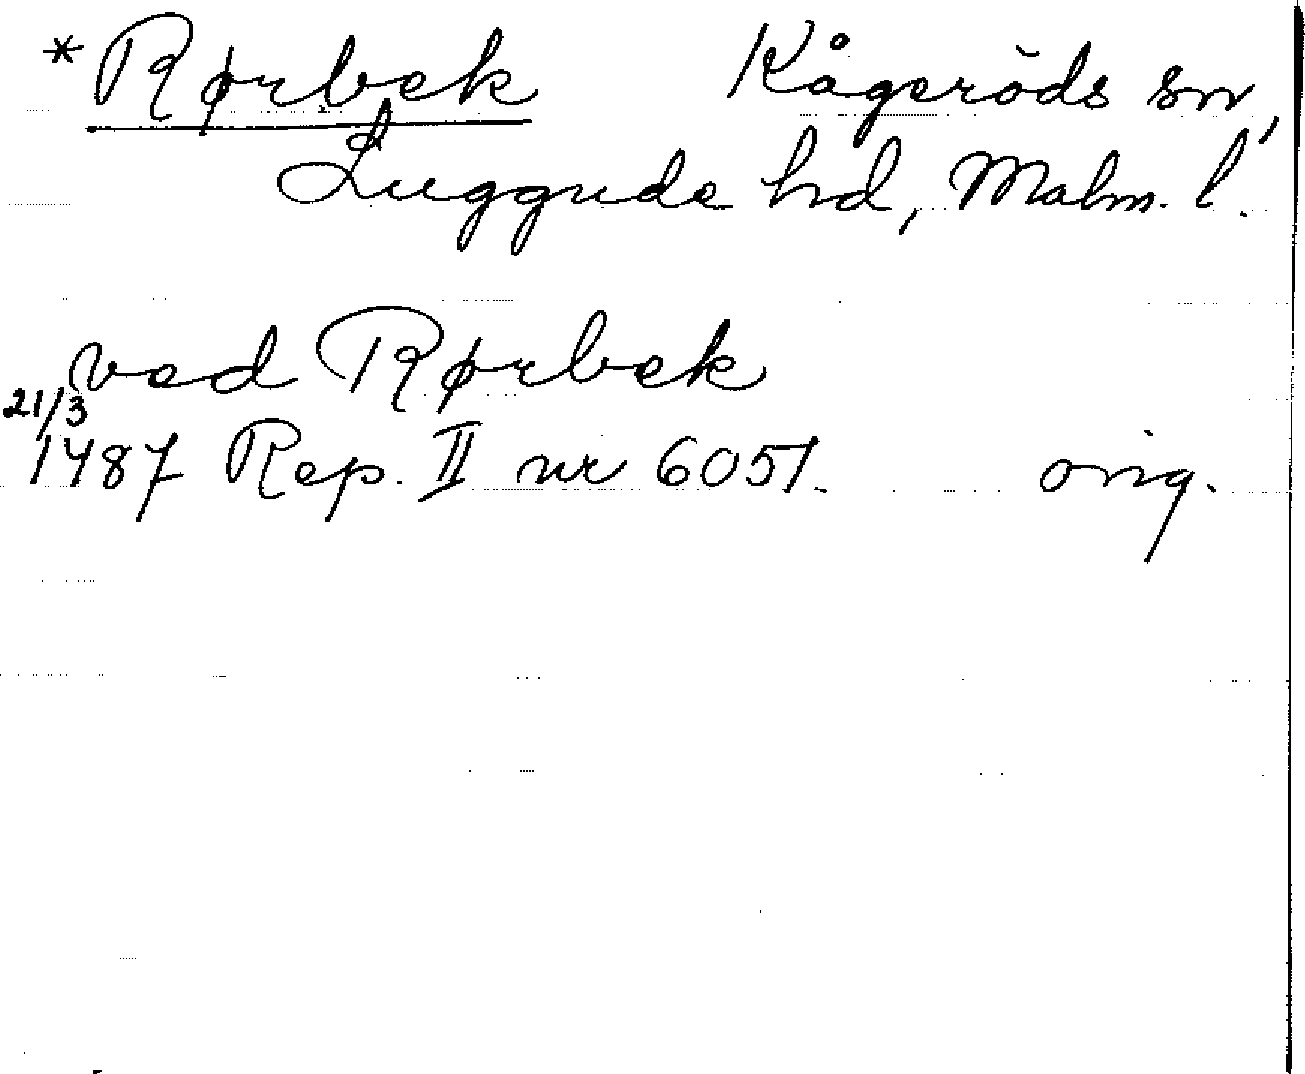 *Rørbek Kågeröds sn,
Luggude hd, Malm. l.
ved Rørbek
21/3
1487 Rep. II nr 6051. orig.